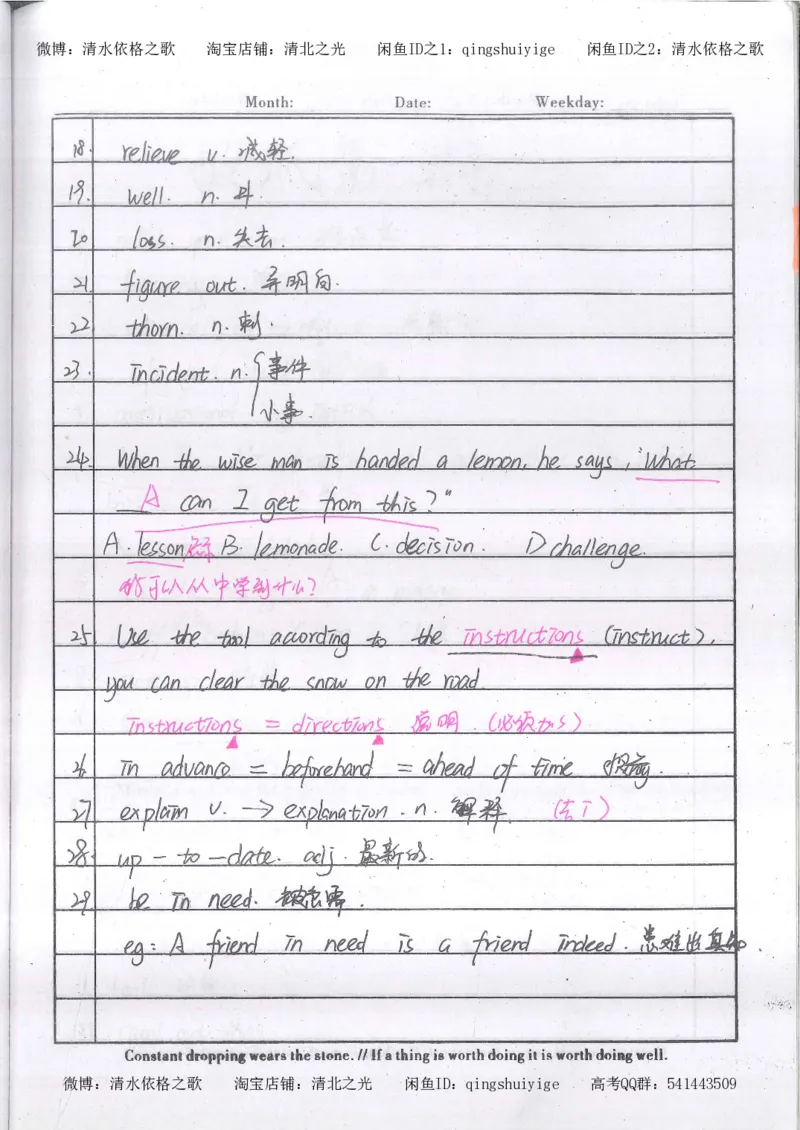 微博：清水依格之歌 淘宝店铺：清北之光 闲鱼ID之1：qingshuiyige 闲鱼ID之2：清水依格之歌
Month: Date: Weekday:
18. relieve v. 减轻.
19. well. n. 井.
20 loss. n. 失去.
21 figure out. 弄明白.
22 thorn. n. 刺.
23. incident. n. { 事件
小事.
24. When the wise man is handed a lemon, he says, "What
A can I get from this?"
A. lesson B. lemonade. C. decision. D challenge.
我可以从中学到什么?
25. Use the tool according to the instructions (instruct),
you can clear the snow on the road.
instructions = directions 说明. (必须加s)
26. in advance = beforehand = ahead of time 提前.
27 explain v. —> explanation. n. 解释. (去i)
28. up-to-date. adj. 最新的.
29 be in need.
eg: A friend in need is a friend indeed. 患难出真知.
Constant dropping wears the stone. // If a thing is worth doing it is worth doing well.
微博：清水依格之歌 淘宝店铺：清北之光 闲鱼ID：qingshuiyige 高考QQ群：541443509